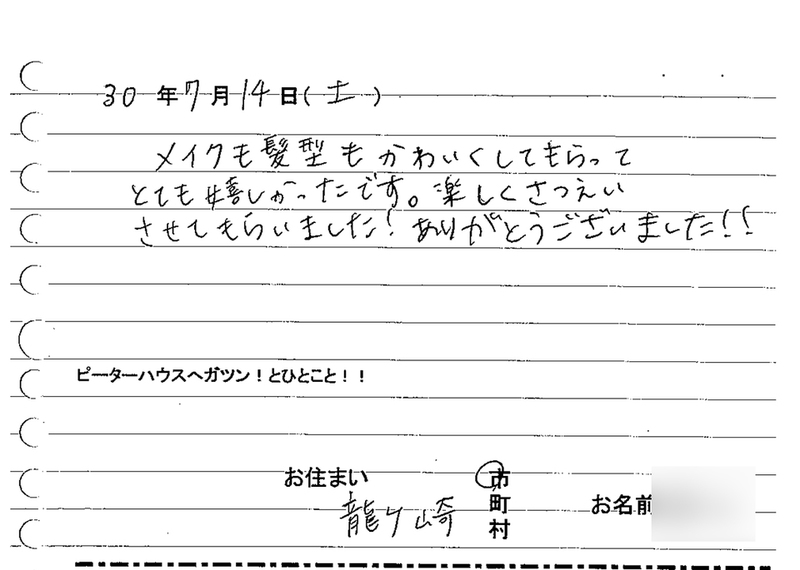 30 年 7 月 14 日(土)
メイクも髪型もかわいくしてもらって
とても嬉しかったです。楽しくさつえい
させてもらいました!ありがとうございました!!
ピーターハウスへガツン!とひとこと!!
お住まい 龍ケ崎 市
町
村
お名前